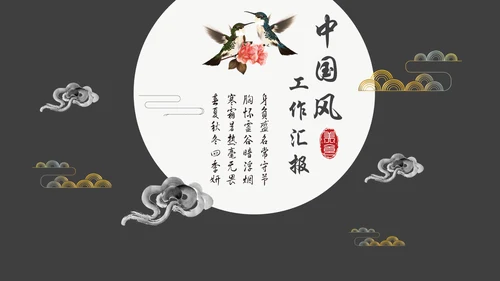 中国风
工作汇报
身负盛名常守节
胸怀虚谷暗浮烟
寒霜甘热毫无畏
春夏秋冬四季妍